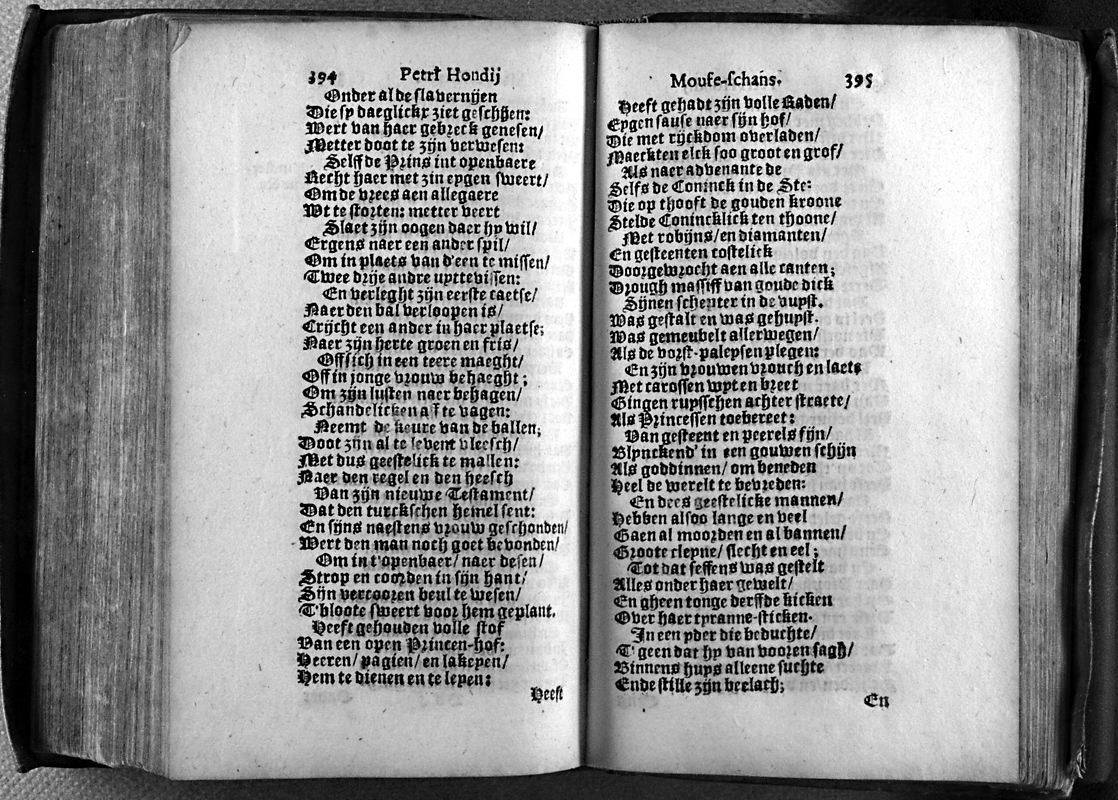 394 Petri Hondij
Onder al de slavernijen
Die sy daeglickx ziet geschien:
Wert van haer gebreck genesen/
Metter doot te zijn verwesen:
Selff de Prins int openbaere
Recht haer met zin eygen sweert/
Om de vrees aen allegaere
Wt te storten: metter veert
Slaet zijn oogen daer hy wil/
Ergens naer een ander spil/
Om in plaets van d'een te missen/
Twee drije andre uyttevissen:
En verleght zijn eerste caetse/
Naer den bal verloopen is/
Crijcht een ander in haer plaetse;
Naer zijn herte groen en fris/
Off sich in een teere maeght/
Off in jonge vrouw behaeght;
Om zijn lusten naer behagen/
Schandelicken af te vagen:
Neemt de keure van de ballen;
Doot zijn al te levent vleesch/
Met dus geestelick te mallen:
Naer den regel en den heesch
Van zijn nieuwe Testament/
Dat den turckschen hemel sent:
En sijns naestens vrouw geschonden/
Wert den man noch goet bevonden/
Om in t'openbaer/ naer desen/
Strop en coorden in sijn hant/
Sijn vercooren beul te wesen/
T'bloote sweert voor hem geplant.
Heeft gehouden volle stof
Van een open Princen-hof:
Heeren/ pagien/ en lakeyen/
Hem te dienen en te leyen:
Heeft
Moufe-schans. 395
Heeft gehadt zijn volle Raden/
Eygen sause naer sijn hof/
Die met rijckdom overladen/
Maeckten elck soo groot en grof/
Als naer advenante de
Selfs de Coninck in de Ste:
Die op thooft de gouden kroone
Stelde Conincklick ten thoone/
Met robijns/ en diamanten/
En gesteenten costelick
Doorgewrocht aen alle canten;
Drough massiff van goude dick
Sijnen schepter in de vuyst.
Was gestalt en was gehuyst.
Was gemeubelt allerwegen/
Als de vorst-paleysen plegen:
En zijn vrouwen vrouch en laets
Met carossen wyt en breet
Gingen ruysschen achter straete/
Als Princessen toebereet:
Van gesteent en peerels fijn/
Blynckend' in een gouwen schijn
Als goddinnen/ om beneden
Heel de werelt te bevreden:
En dees geestelicke mannen/
Hebben alsoo lange en veel
Gaen al moorden en al bannen/
Groote cleyne/ slecht en eel;
Tot dat seffens was gestelt
Alles onder haer gewelt/
En gheen tonge derffde kicken
Over haer tyranne-sticken.
In een yder die beduchte/
T'geen dat hy van vooren sagh/
Binnens huys alleene suchte
Ende stille zijn beclach;
En